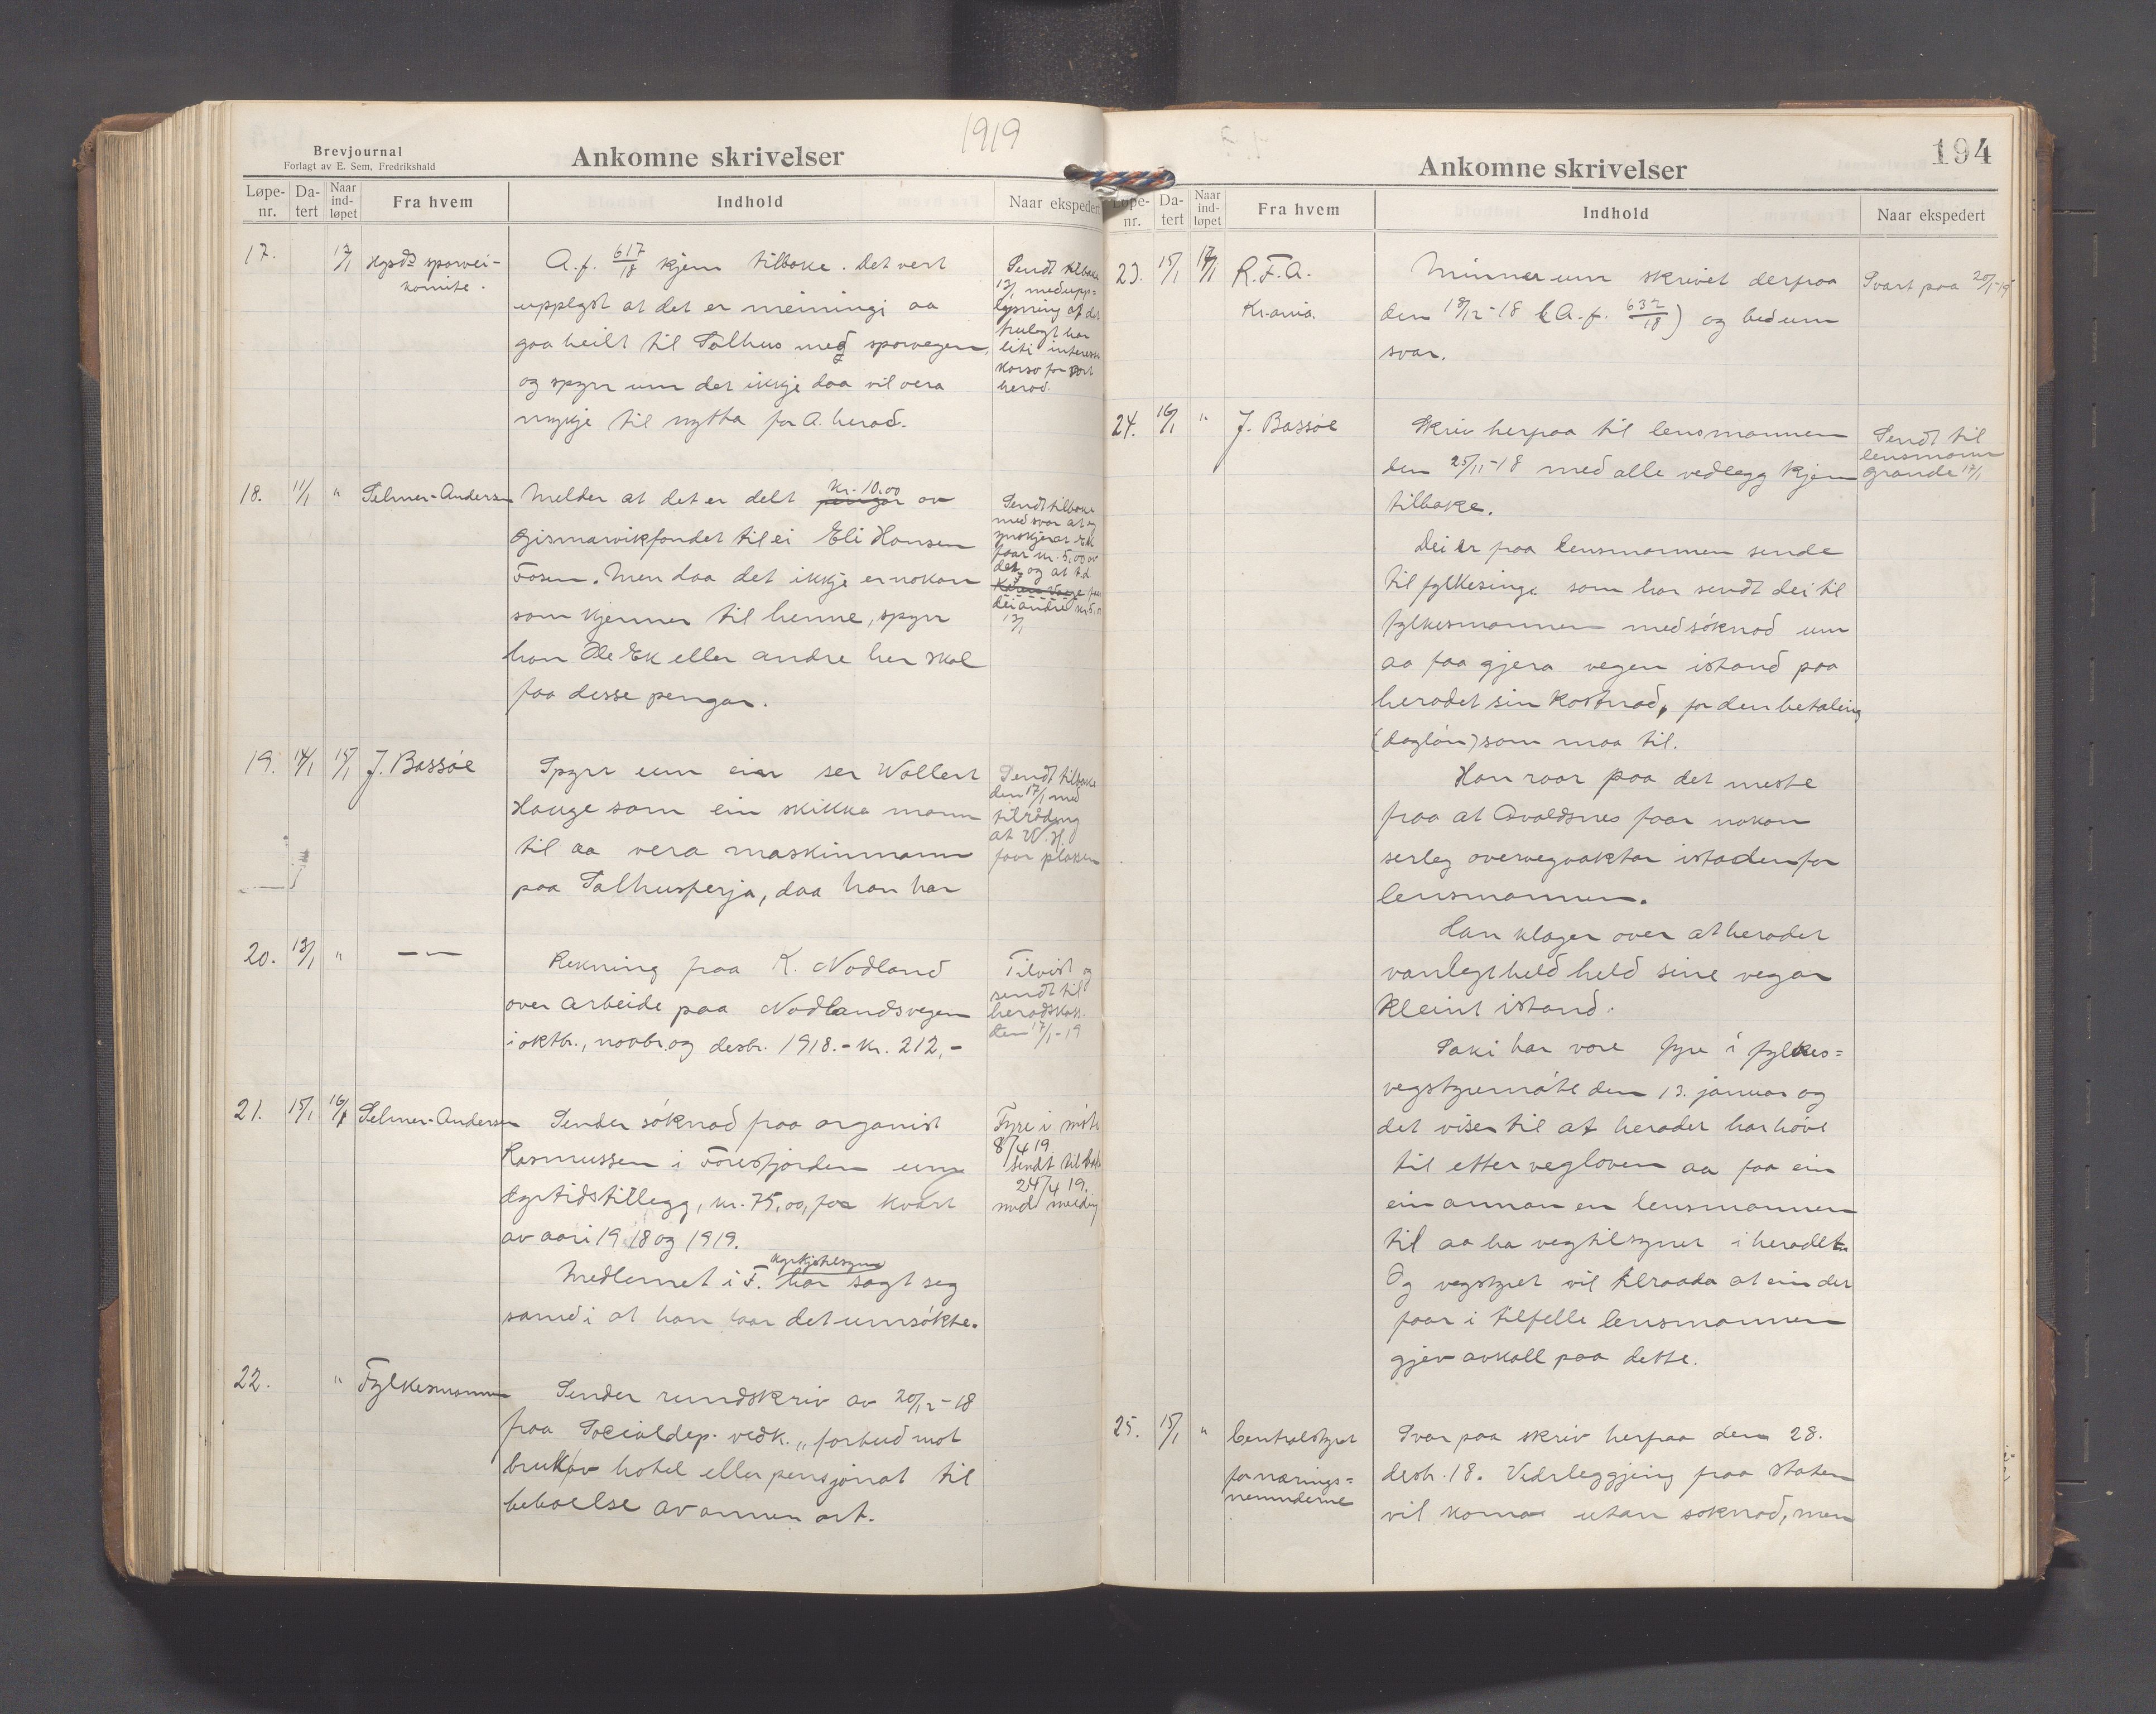 Brevjournal
Forlagt av E. Sem, Fredrikshald
Ankomne skrivelser
1919
Løpe-nr.
Da-tert
Naar ind-løpet
Fra hvem
Indhold
Naar ekspedert
17.
13/1
Hgsds sporvei-
komite.
A.f. 617/18 kjem tilbake. Det vert
upplyst at det er meiningi aa
gaa heilt til Salhus med sporvegen,
og spyrr um det ikkje daa vil vera
mykje til nytta for A. herad.
Sendt tilbake
13/1 med upp-
lysning at det
truleg har
liti interesse
for vort
herad.
18.
11/1
"
Selmer-Andersen
Melder at det er delt kr. 10.00 pengar av
Gismarvikfondet til ei Eli Hansen
Fosen. Men daa det ikkje er nokon
som kjenner til henne, spyrr
han Ole Ek eller andre her skal
faa desse pengar.
Sendt tilbake
med svar at eg
ynskjer at Ek
faar kr. 5,00 av
det, og at
dei andre kr. 5,
13/1
19.
14/1
15/1
J. Bassöe
Spyrr um ein ser Wollert
Hauge som ein skikka mann
til aa vera maskinmann
paa Salhusferja, daa han har
Sendt tilbake
den 17/1 med
tilråding
at W. H.
faar plassen
20.
13/1
"
— —
Rekning fraa K. Nodland
over arbeide paa Nodlandsvegen
i oktbr., novbr. og desbr. 1918.- kr. 212,-
Tilvist og
sendt til
heradskass.
den 17/1-19
21.
15/1
16/1
Selmer-Andersen
Sender söknad fraa organist
Rasmussen i Föresfjorden um
dyrtidstillegg, kr. 75,00, for kvart
av aari 1918 og 1919.
Medlemet i F. kyrkjetilsyn har sagt seg
samd i at han faar det umsökte.
Fyre i möte
8/4 19
Sendt tilbake
24/4 19.
med melding
22.
"
Fylkesmannen
Sender rundskriv av 20/12-18
fraa Socialdep. vedk. „forbud mot
bruk av hotel eller pensjonat til
beboelse av annen art.
Ankomne skrivelser
194
Løpe-nr.
Da-tert
Naar ind-løpet
Fra hvem
Indhold
Naar ekspedert
23.
15/1
17/1
R.F.A.
Kr.ania.
Minner um skrivet derfraa
den 18/12-18 (A.f. 632/18) og bed um
svar.
Svart paa 20/1-19
24.
16/1
"
J. Bassöe
Skriv herfraa til lensmannen
den 25/11-18 med alle vedlegg kjem
tilbake.
Dei er fraa lensmannen sende
til fylkesinge. som har sendt dei til
fylkesmannen med söknad um
aa faa gjera vegen istand paa
heradet sin kostnad, for den betaling
(daglön) som maa til.
Han raar paa det meste
fraa at Avaldsnes faar nokon
serleg overvegvaktar istadenfor
lensmannen.
Han klagar over at heradet
vanlegt held held sine vegar
kleint istand.
Saki har vore fyre i fylkes=
vegstyremöte den 13. januar og
det viser til at heradet har höve
til etter vegloven aa faa ein
ein annan en lensmannen
til aa ha vegtilsynet i heradet
Og vegstyret vil tilraada at ein det
faar i tilfelle lensmannen
gjev avkall paa dette.
Sendt til
lensmann
Grande 17/1
25.
15/1
"
Centralstyret
for nærings=
nemnderne
Svar paa skriv herfraa den 28.
desbr. 18. Vederleggjing fraa staten
vil koma utan soknad, men